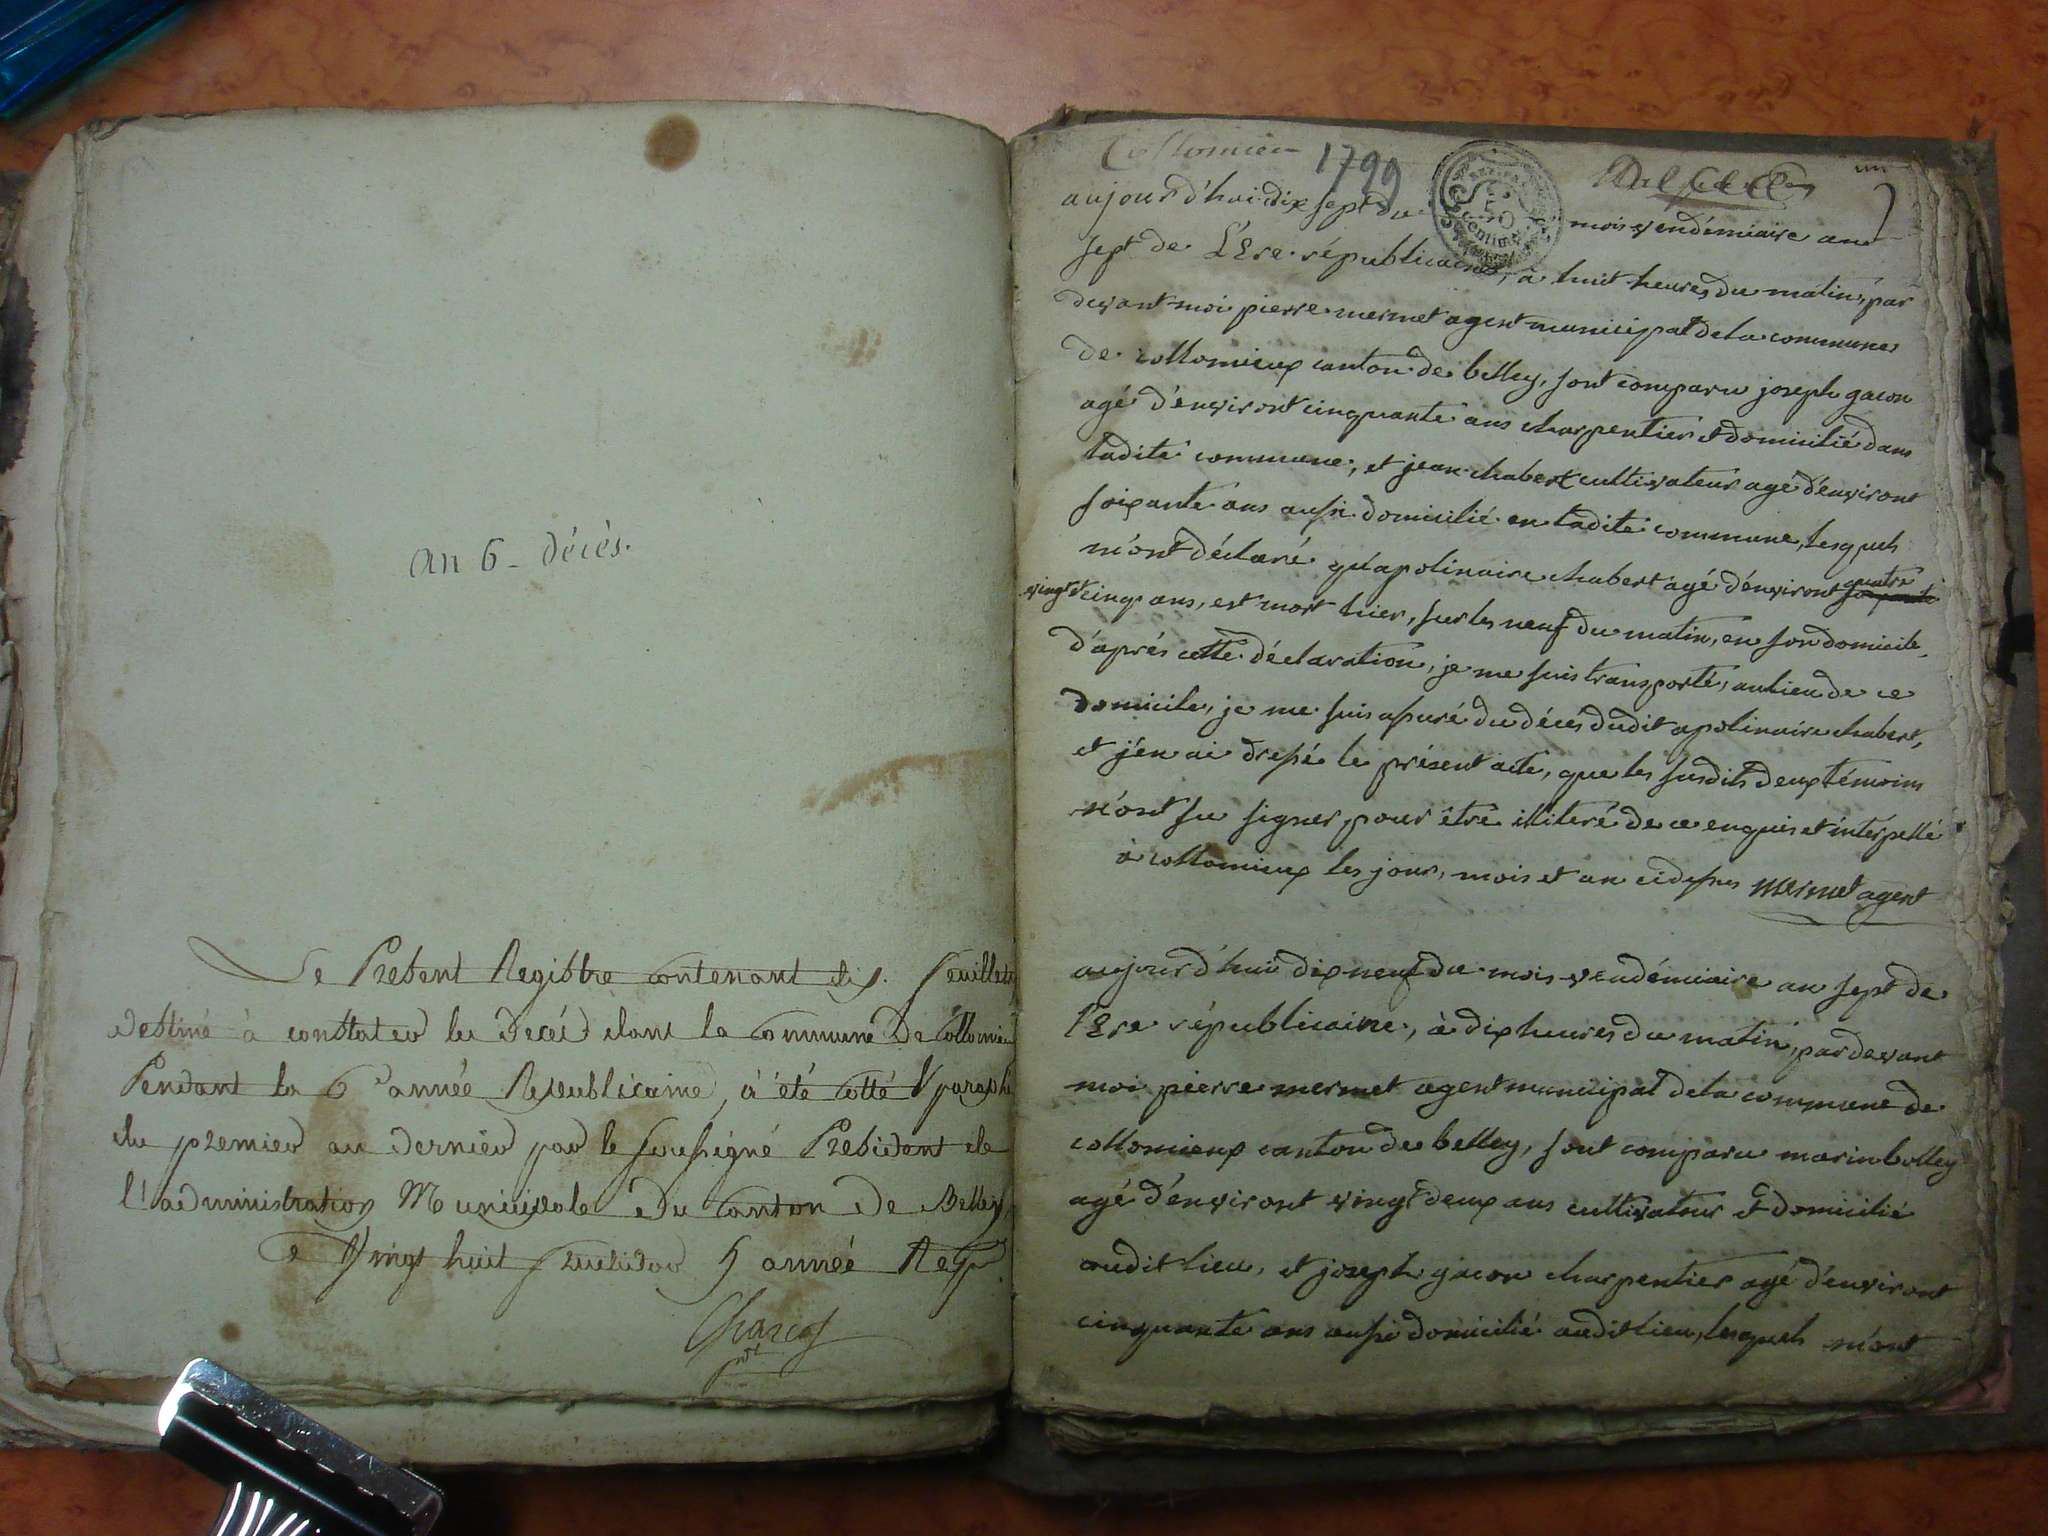 an 6 - décès.
Le Present Registre contenant dix feuillets
destiné à constater les Decés dans la Commune De Collomieu
Pendant la 6e année Republicaine, a été cotté & paraphé
du premier au dernier par le soussigné President de
l'administration Municipale du Canton de Belley,
ce Vingt huit fructidor 5 année Rep
pdt
Collomieu 1799
un
50
aujourd'hui dix sept du mois vendémiaire an
sept de l'Ere républicaine, à huit heures du matin, par
devant moi pierre mermet agent municipal de la commune
de collomieux canton de belley, sont comparu joseph gacon
agé d'environt cinquante ans charpentier et domicilié dans
ladite commune, et jean chabert cultivateur agé d'environt
soixante ans aussi domicilié en ladite commune, lesquels
m'ont déclaré qu'apolinaire chabert agé d'environt quatre
vingt cinq ans, est mort hier, sur les neuf du matin, en son domicile,
d'après cette déclaration, je me suis transporté, au lieu de ce
domicile, je me suis assuré du décés dudit apolinaire chabert,
et j'en ai dressé le présent acte, que les susdits deux témoins
n'ont su signer pour être illiteré de ce enquis et interpellé
à collomieux les jour, mois et an cidessus mermet agent
aujourd'hui dix neuf du mois vendémiaire an sept de
l'Ere républicaine, à dix heures du matin, par devant
moi pierre mermet agent municipal de la commune de
collomieux canton de belley, sont comparu marin bolley
agé d'environt vingt deux ans cultivateur et domicilié
audit lieu, et joseph gacon charpentier agé d'environt
cinquante ans aussi domicilié audit lieu, lesquels m'ont